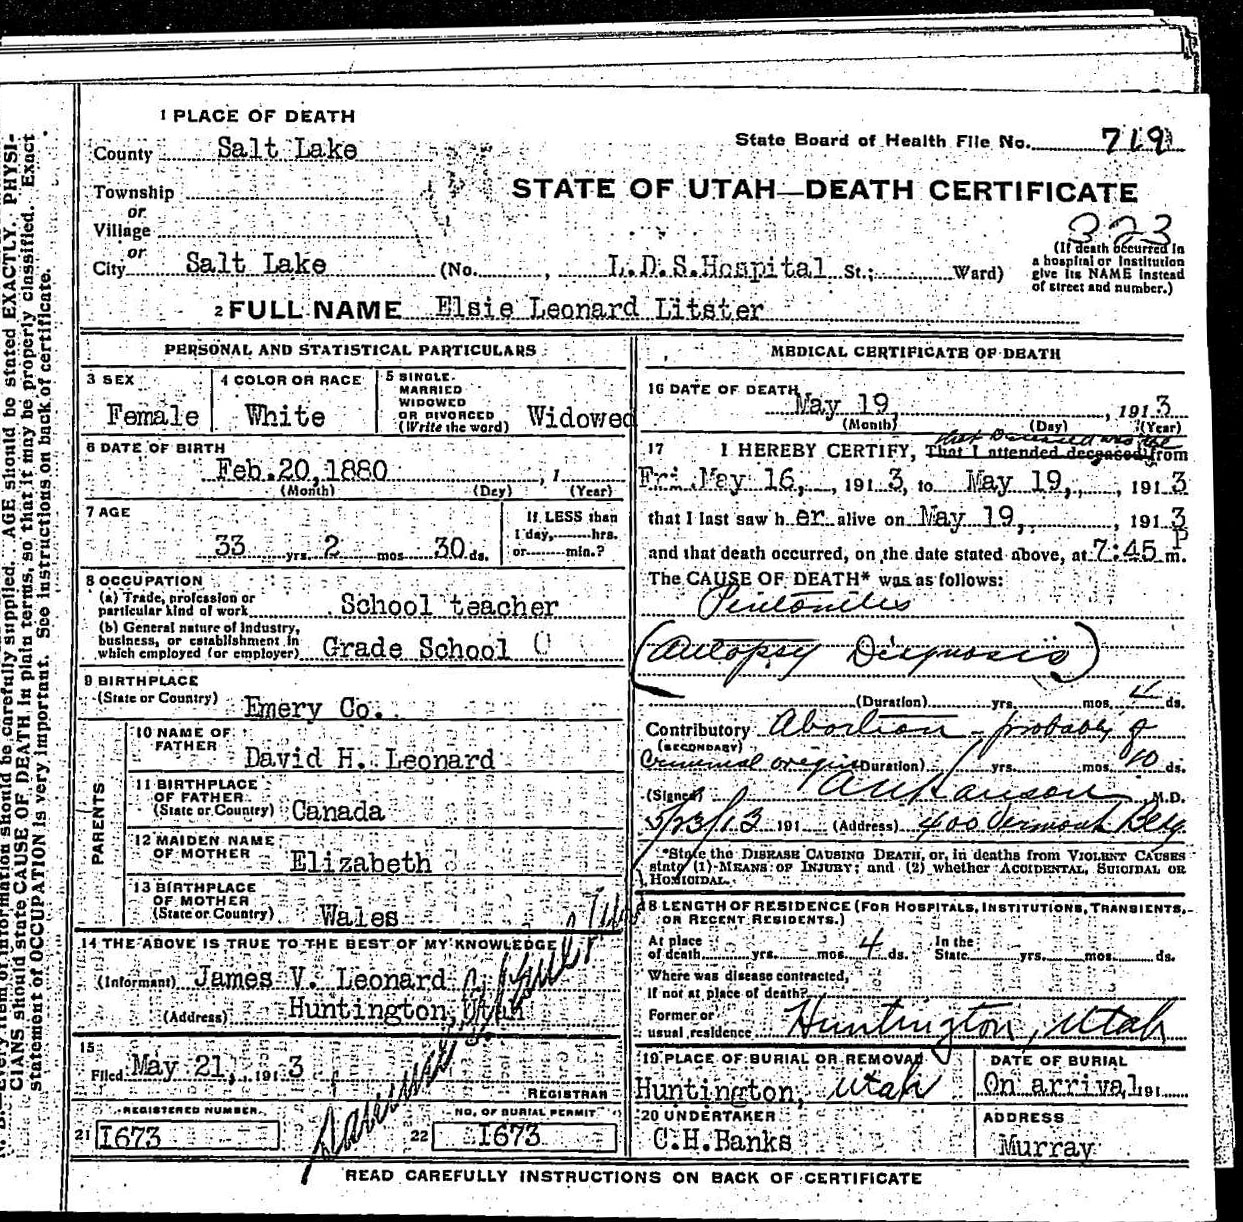 N. B.—Every item of information should be carefully supplied. AGE should be stated EXACTLY. PHYSI-
CIANS should state CAUSE OF DEATH in plain terms, so that it may be properly classified. Exact
statement of OCCUPATION is very important. See instructions on back of certificate.
1 PLACE OF DEATH
County Salt Lake
State Board of Health File No. 719
Township
STATE OF UTAH—DEATH CERTIFICATE
or
Village
323
or
City Salt Lake (No. , L.D.S.Hospital St.; Ward)
(If death occurred in
a hospital or institution
give its NAME instead
of street and number.)
2 FULL NAME Elsie Leonard Litster
PERSONAL AND STATISTICAL PARTICULARS
3 SEX
Female
4 COLOR OR RACE
White
5 SINGLE.
MARRIED
WIDOWED
OR DIVORCED
(Write the word) Widowed
6 DATE OF BIRTH
Feb.20,1880 , 1
(Month) (Day) (Year)
7 AGE
33 yrs. 2 mos 30 ds.
If LESS than
1 day, hrs.
or min.?
8 OCCUPATION
(a) Trade, profession or
particular kind of work School teacher
(b) General nature of industry,
business, or establishment in
which employed (or employer) Grade School
9 BIRTHPLACE
(State or Country) Emery Co.
PARENTS
10 NAME OF
FATHER
David H. Leonard
11 BIRTHPLACE
OF FATHER
(State or Country) Canada
12 MAIDEN NAME
OF MOTHER Elizabeth
13 BIRTHPLACE
OF MOTHER
(State or Country) Wales
14 THE ABOVE IS TRUE TO THE BEST OF MY KNOWLEDGE
(Informant) James V. Leonard
(Address) Huntington, Utah
15
Filed May 21, 1913
REGISTRAR
REGISTERED NUMBER
21 1673
NO. OF BURIAL PERMIT
22 1673
MEDICAL CERTIFICATE OF DEATH
16 DATE OF DEATH
May 19, , 1913
(Month) (Day) (Year)
that Deceased was
17 I HEREBY CERTIFY, That I attended deceased from
Fri May 16, , 1913, to May 19, , 1913
that I last saw her alive on May 19, , 1913
and that death occurred, on the date stated above, at 7:45 P m.
The CAUSE OF DEATH* was as follows:
Peritonitis
(Autopsy Diagnosis)
(Duration) yrs. mos. 4 ds.
Contributory Abortion – probably of
(SECONDARY)
Criminal origin (Duration) yrs. mos. 10 ds.
(Signed) M.D.
5/23/13 191 (Address) 400 Vermont Bldg.
*State the DISEASE CAUSING DEATH, or, in deaths from VIOLENT CAUSES
state (1) MEANS OF INJURY; and (2) whether ACCIDENTAL, SUICIDAL OR
HOMICIDAL.
18 LENGTH OF RESIDENCE (FOR HOSPITALS, INSTITUTIONS, TRANSIENTS,
OR RECENT RESIDENTS.)
At place
of death yrs. mos. 4 ds.
In the
State yrs. mos. ds.
Where was disease contracted,
If not at place of death?
Former or
usual residence Huntington, Utah
19 PLACE OF BURIAL OR REMOVAL
Huntington, Utah
DATE OF BURIAL
On arrival, 191
20 UNDERTAKER
C.H.Banks
ADDRESS
Murray
READ CAREFULLY INSTRUCTIONS ON BACK OF CERTIFICATE